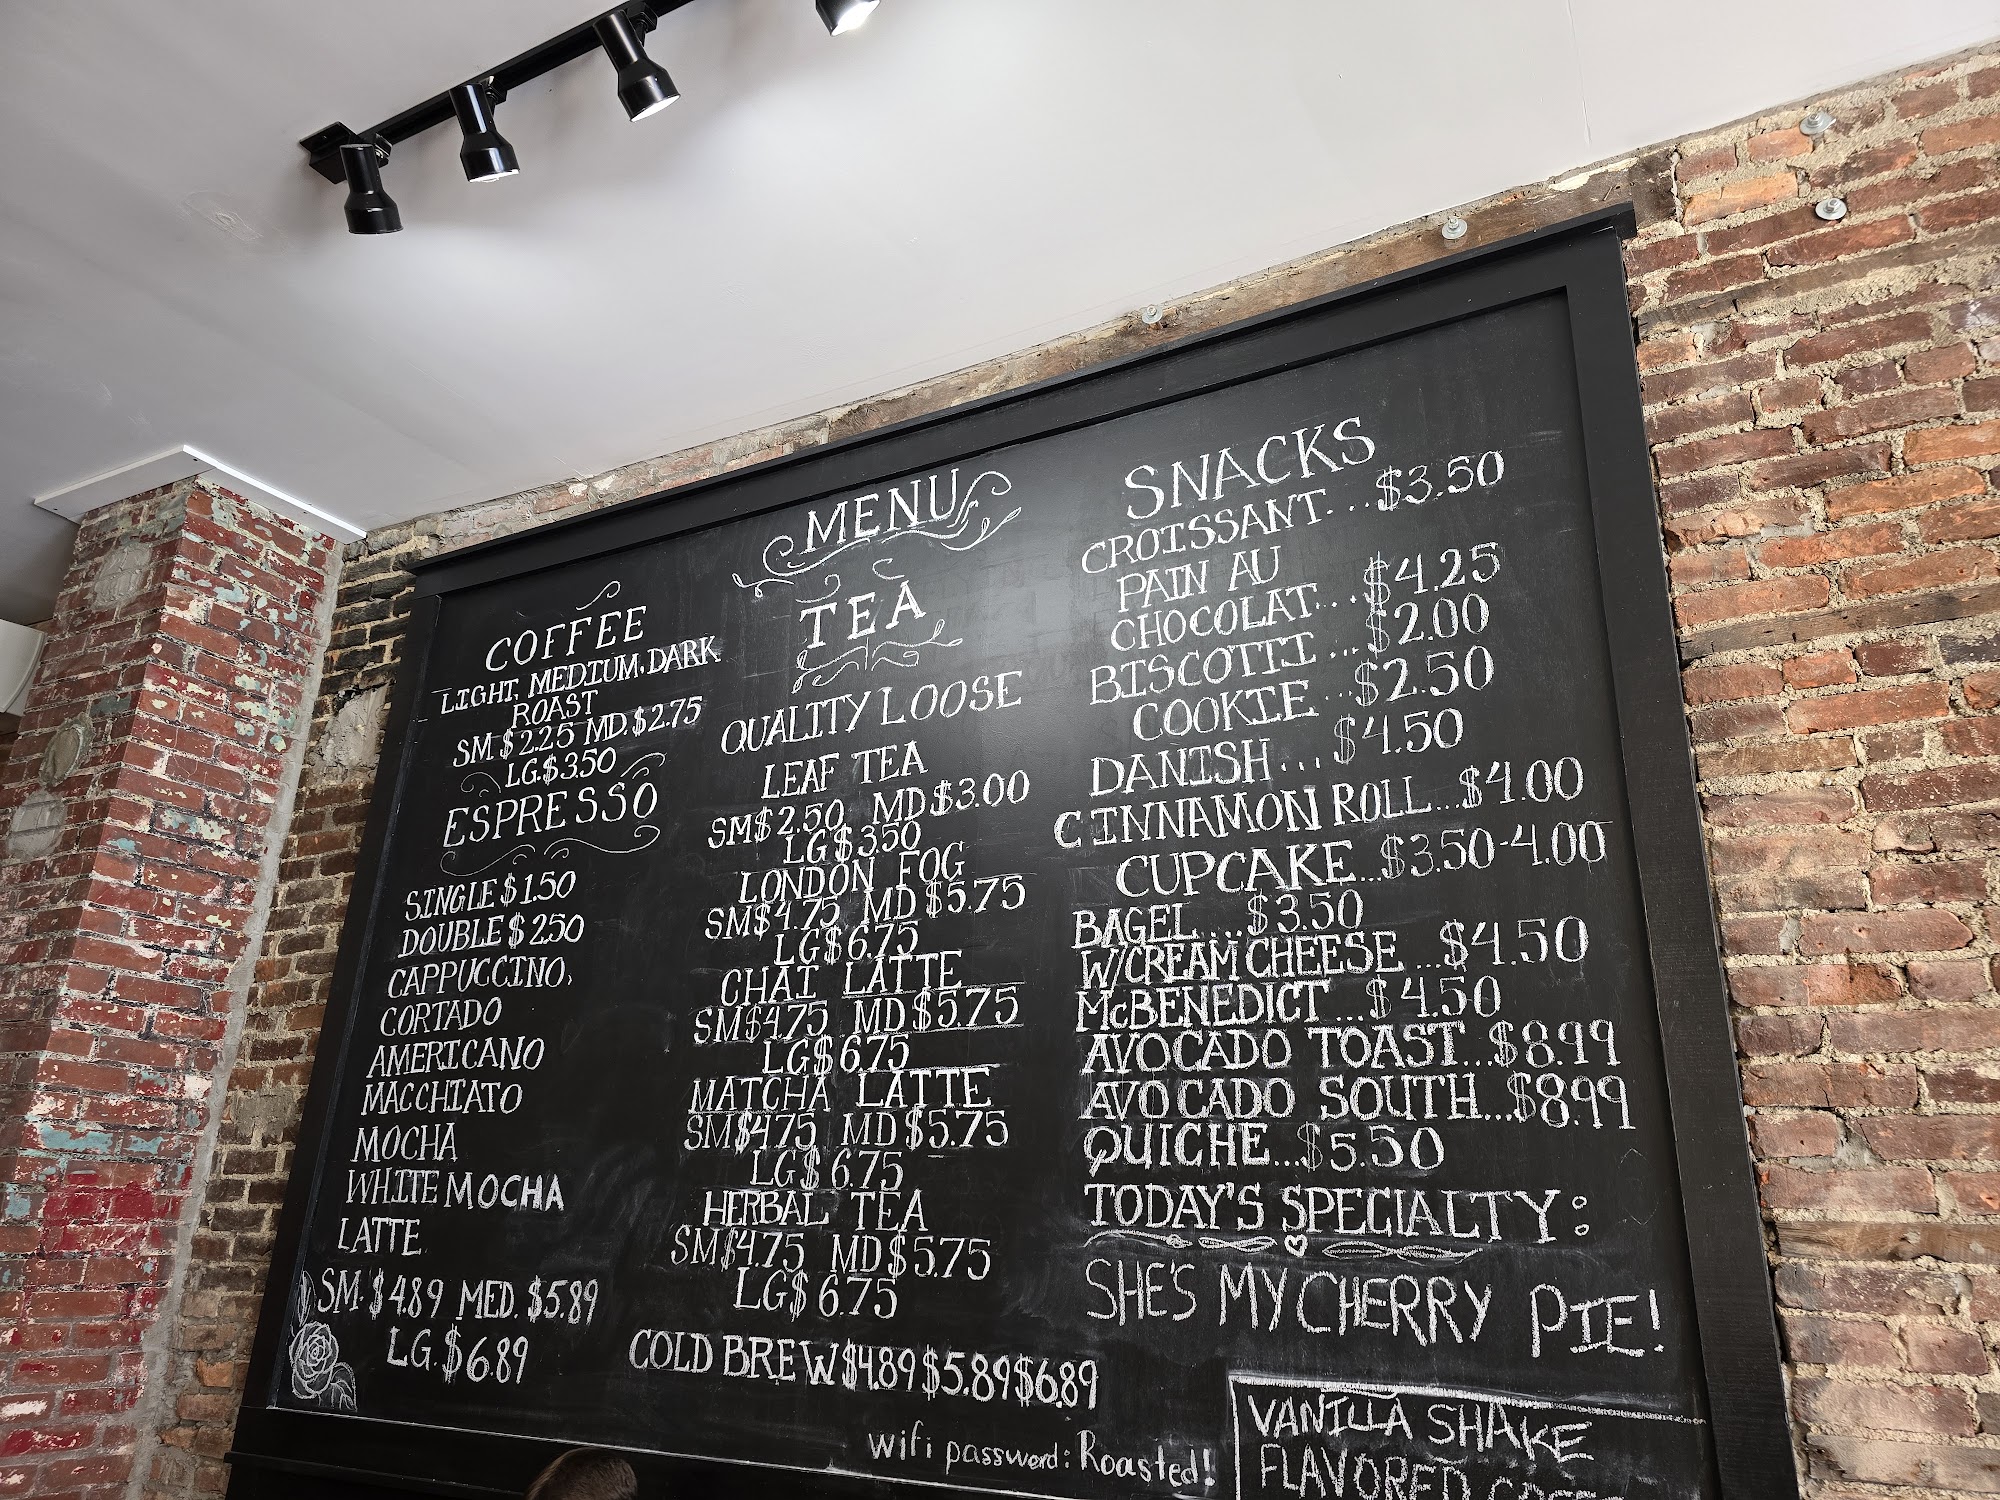 MENU
COFFEE
LIGHT, MEDIUM, DARK
ROAST
SM $2.25 MD. $2.75
LG. $3.50
ESPRESSO
SINGLE $1.50
DOUBLE $2.50
CAPPUCCINO,
CORTADO
AMERICANO
MACCHIATO
MOCHA
WHITE MOCHA
LATTE
SM. $4.89 MED. $5.89
LG. $6.89
TEA
QUALITY LOOSE
LEAF TEA
SM$2.50 MD $3.00
LG $3.50
LONDON FOG
SM$4.75 MD $5.75
LG$6.75
CHAI LATTE
SM$4.75 MD $5.75
LG$6.75
MATCHA LATTE
SM$4.75 MD $5.75
LG$6.75
HERBAL TEA
SM$4.75 MD $5.75
LG$6.75
COLD BREW $4.89 $5.89 $6.89
wifi password: Roasted!
SNACKS
CROISSANT...$3.50
PAIN AU
CHOCOLAT...$4.25
BISCOTTI...$2.00
COOKIE...$2.50
DANISH...$4.50
CINNAMON ROLL...$4.00
CUPCAKE...$3.50-4.00
BAGEL....$3.50
W/CREAM CHEESE...$4.50
McBENEDICT...$4.50
AVOCADO TOAST...$8.99
AVOCADO SOUTH...$8.99
QUICHE...$5.50
TODAY'S SPECIALTY:
SHE'S MY CHERRY PIE!
VANILLA SHAKE
FLAVORED